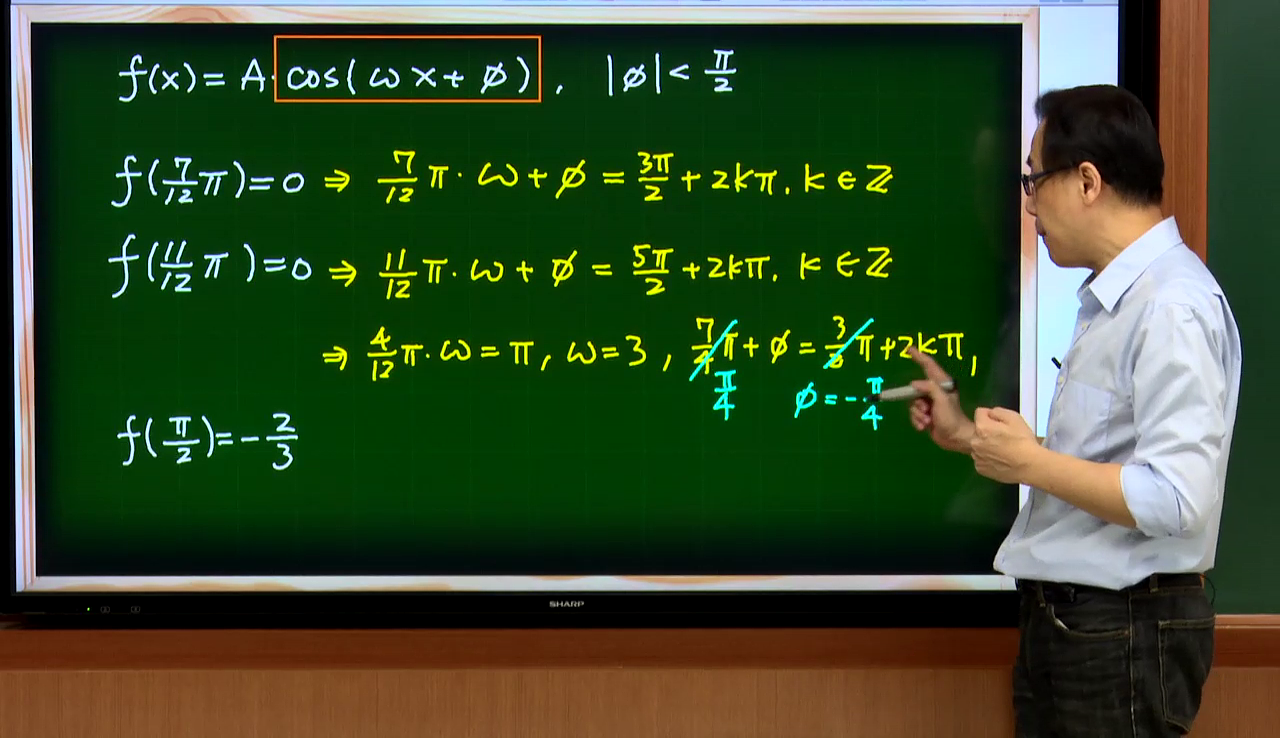 f(x) = A · cos(ωx + ϕ), |ϕ| < π/2
f(7/12 π) = 0 ⇒ 7/12 π · ω + ϕ = 3π/2 + 2kπ, k ∈ ℤ
f(11/12 π) = 0 ⇒ 11/12 π · ω + ϕ = 5π/2 + 2kπ, k ∈ ℤ
⇒ 4/12 π · ω = π, ω = 3, 7/4 π + ϕ = 3/2 π + 2kπ,
π/4 ϕ = -π/4
f(π/2) = -2/3
SHARP